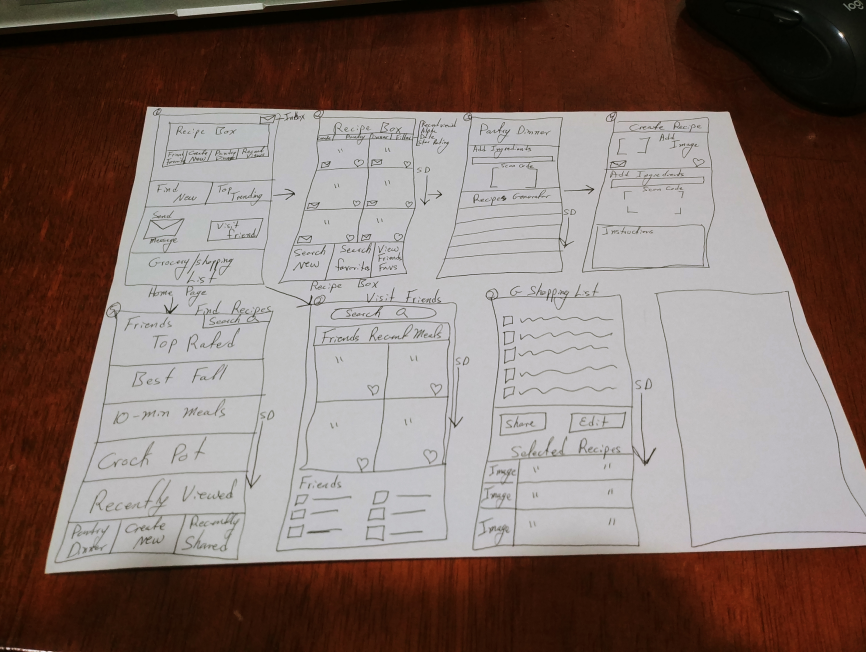 logi
Inbox
Recipe Box
Create New
Find New
Top Trending
Send Message
Visit Friend
Grocery/Shopping List
Home Page
Recipe Box
"
"
"
"
"
"
Search New
Search favorites
View Friends Favs
Recipe Box
SD
Pantry Dinner
Add Ingredients
Scan Code
Recipes Generator
SD
Create Recipe
Add Image
Add Ingredients
Scan Code
Instructions
Find Recipes
Friends
Search
Top Rated
Best Fall
10-min Meals
Crock Pot
Recently Viewed
Pantry Dinner
Create New
Recently Shared
SD
Visit Friends
Search
Friends Recent Meals
"
"
"
"
Friends
SD
G Shopping List
Share
Edit
Selected Recipes
Image " "
Image " "
Image " "
SD